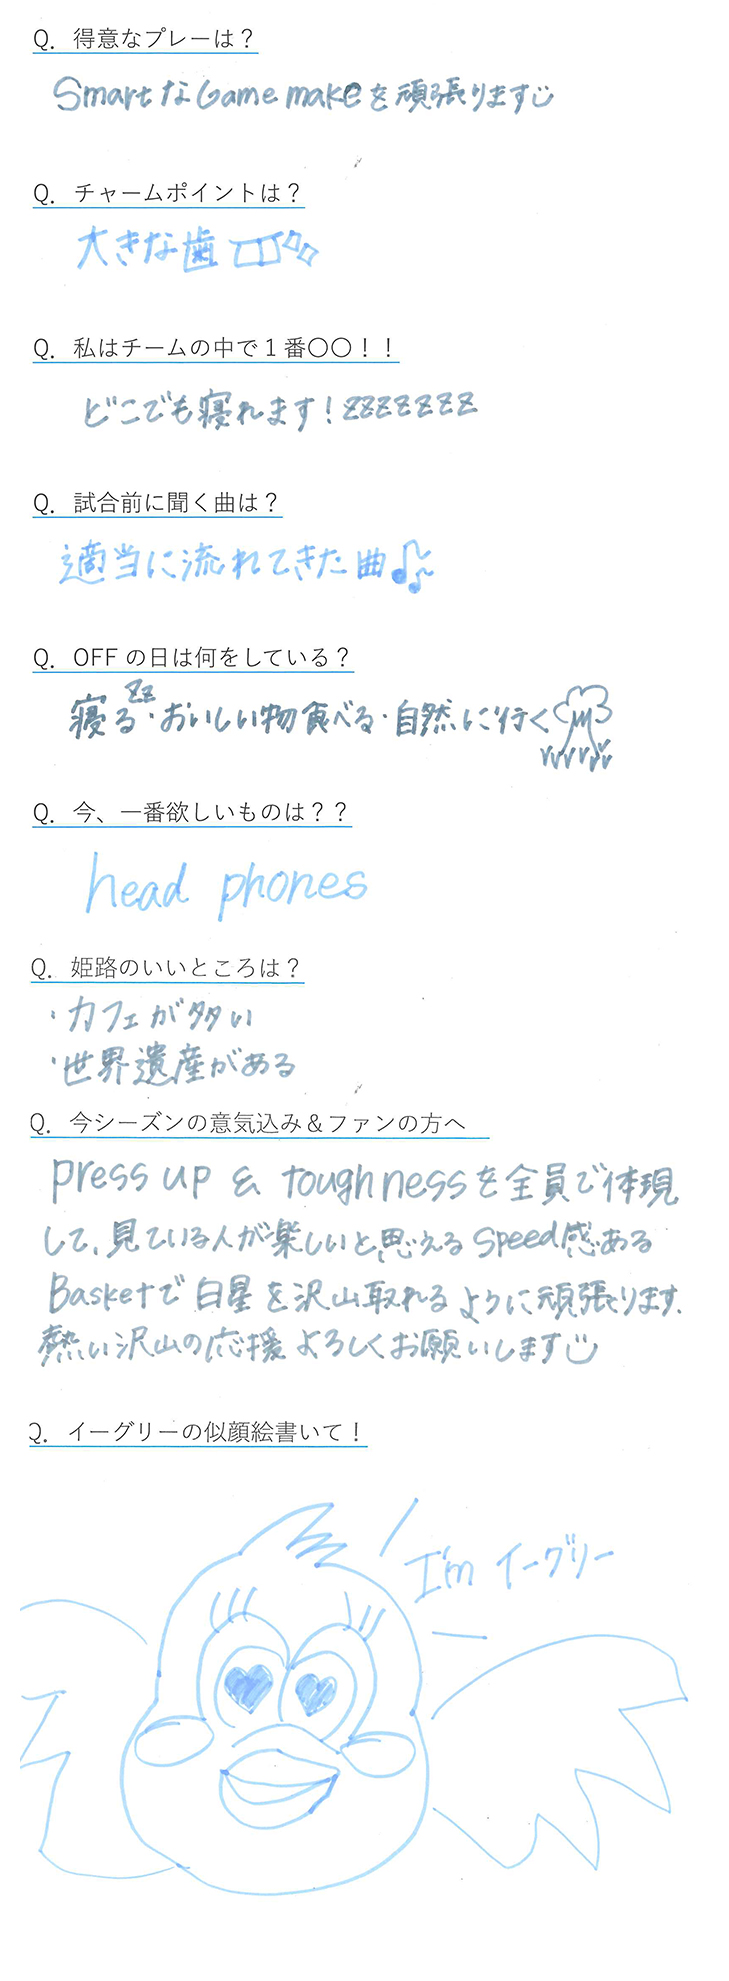 Q. 得意なプレーは？
SmartなGame makeを頑張ります
Q. チャームポイントは？
大きな歯
Q. 私はチームの中で１番〇〇！！
どこでも寝れます！zzzzzzz
Q. 試合前に聞く曲は？
適当に流れてきた曲♫
Q. OFF の日は何をしている？
zz
寝る・おいしい物食べる・自然に行く
Q. 今、一番欲しいものは？？
head phones
Q. 姫路のいいところは？
・カフェが多い
・世界遺産がある
Q. 今シーズンの意気込み＆ファンの方へ
press up & toughnessを全員で体現
して、見ている人が楽しいと思える speed感ある
Basketで白星を沢山取れるように頑張ります.
熱い沢山の応援よろしくお願いします
Q. イーグリーの似顔絵書いて！
I'm イーグリー